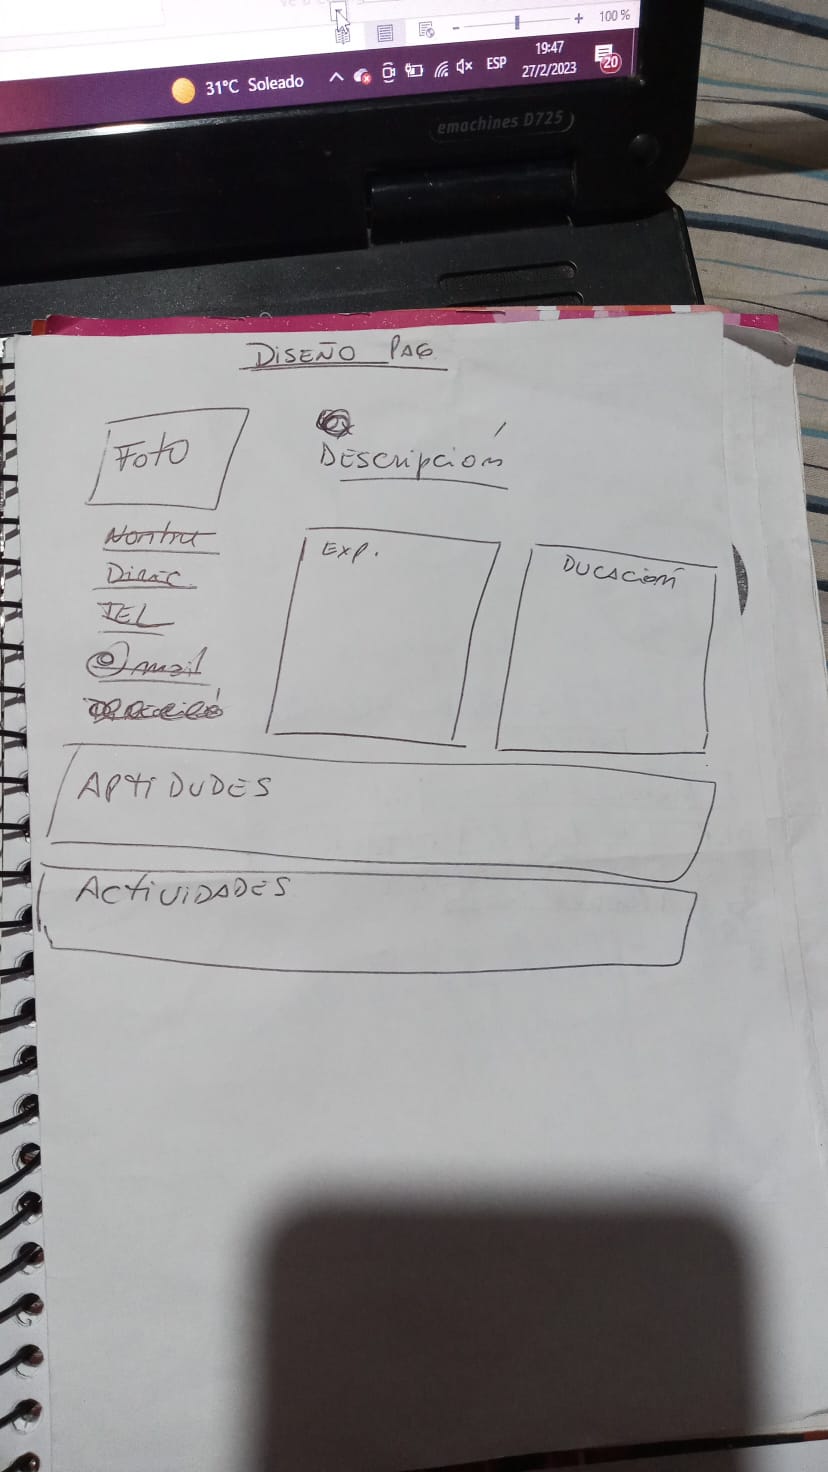 100 %
31°C Soleado
ESP
19:47
27/2/2023
20
emachines D725
DISEÑO PAG
FOTO
DESCRIPCIÓN
Nombre
Direc
TEL
@mail
EXP.
DUCACIÓN
APTIDUDES
ACTIVIDADES